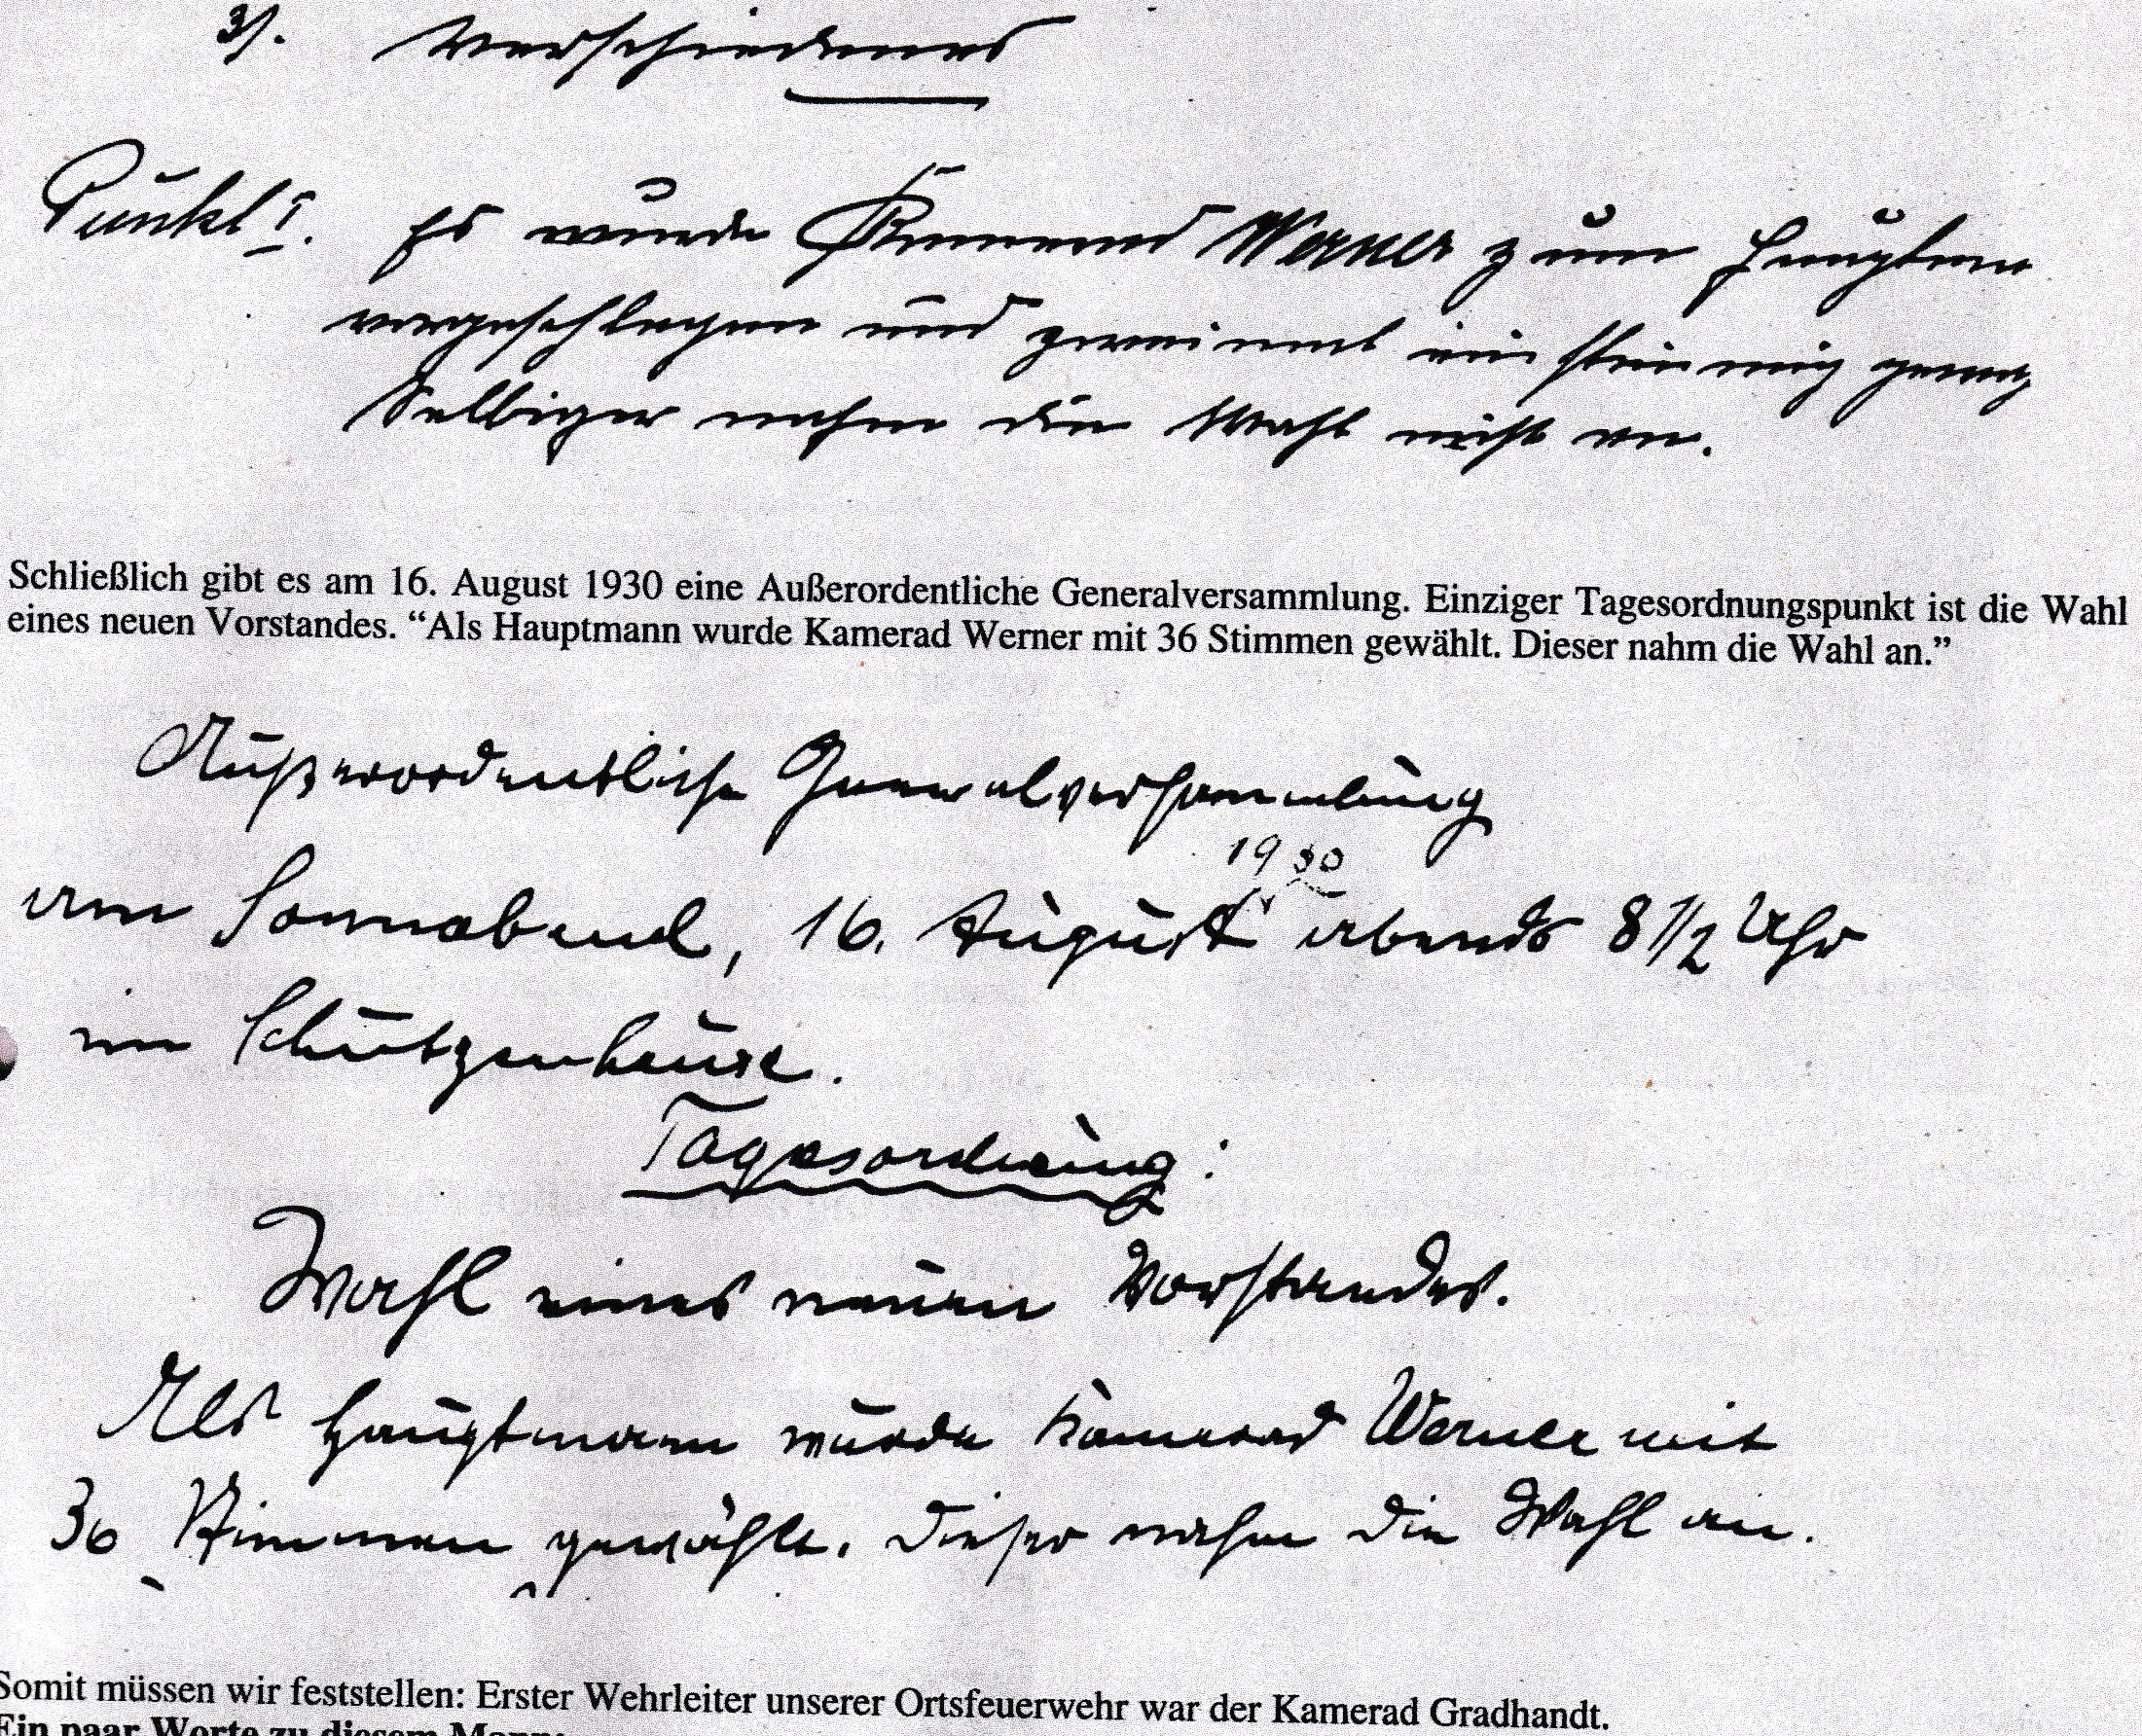 3). Verschiedenes
Punkt I. Es wurde Kamerad Werner zum Hauptman
vorgeschlagen und zweimal einstimmig gewä
Selbiger nahm die Wahl nicht an.
Schließlich gibt es am 16. August 1930 eine Außerordentliche Generalversammlung. Einziger Tagesordnungspunkt ist die Wahl
eines neuen Vorstandes. “Als Hauptmann wurde Kamerad Werner mit 36 Stimmen gewählt. Dieser nahm die Wahl an.”
Außerordentliche Generalversammlung
1930
am Sonnabend, 16. August abends 8 1/2 Uhr
im Schützenhause.
Tagesordnung:
Wahl eines neuen Vorstandes.
Als Hauptmann wurde Kamerad Werner mit
36 Stimmen gewählt. Dieser nahm die Wahl an.
Somit müssen wir feststellen: Erster Wehrleiter unserer Ortsfeuerwehr war der Kamerad Gradhandt.
Ein paar Worte zu diesem Mann: